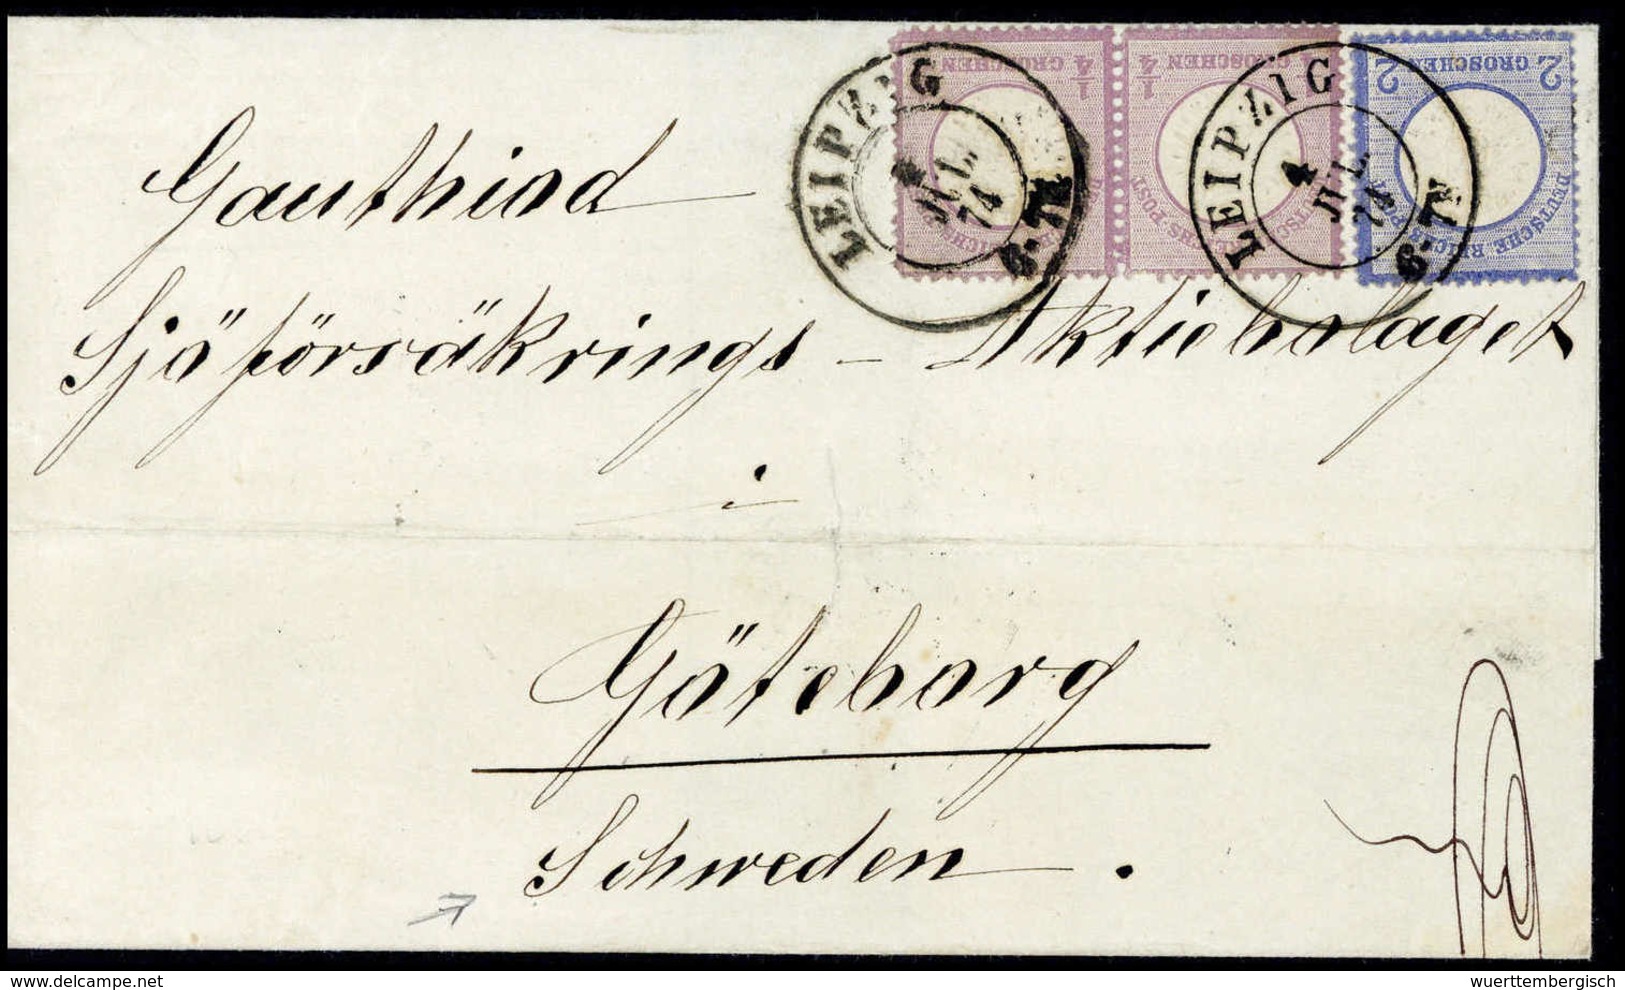 ¼ GROSCHEN ¼
¼ GROSCHEN ¼
2 GROSCHEN 2
DEUTSCHE REICHS-POST
LEIPZIG
4
JUL.
74
6-7N
LEIPZIG
4
JUL.
74
6-7N
Gauthiod
Sjöförsäkrings - Aktiebolaget
i
Göteborg
Schweden.
wuerttembergisch